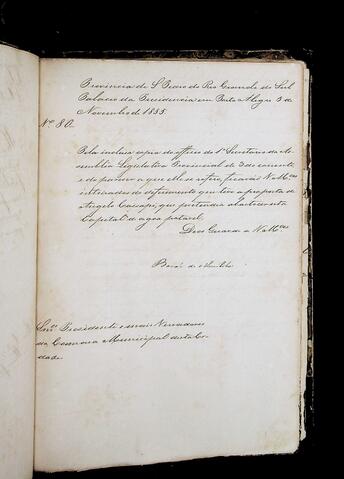 Provincia de S. Pedro do Rio Grande do Sul
Palacio da Presidencia em Porto Alegre 5 de
Novembro de 1855.
Nº 80.
Pela inclusa copia do officio do 1º Secretario da As
semblea Legislativa Provincial de 3 do corrente,
e do parecer a que elle se refere, ficarão V. Mces
inteirados do deferimento que teve a proposta de
Angelo Cassapi, que pretendia abastecer esta
Capital de agoa potavel.
Deos Guarde a V. Mces
Barão de Muritiba
Snres Presidente e mais Vereadores
da Camara Municipal desta Ci
dade.